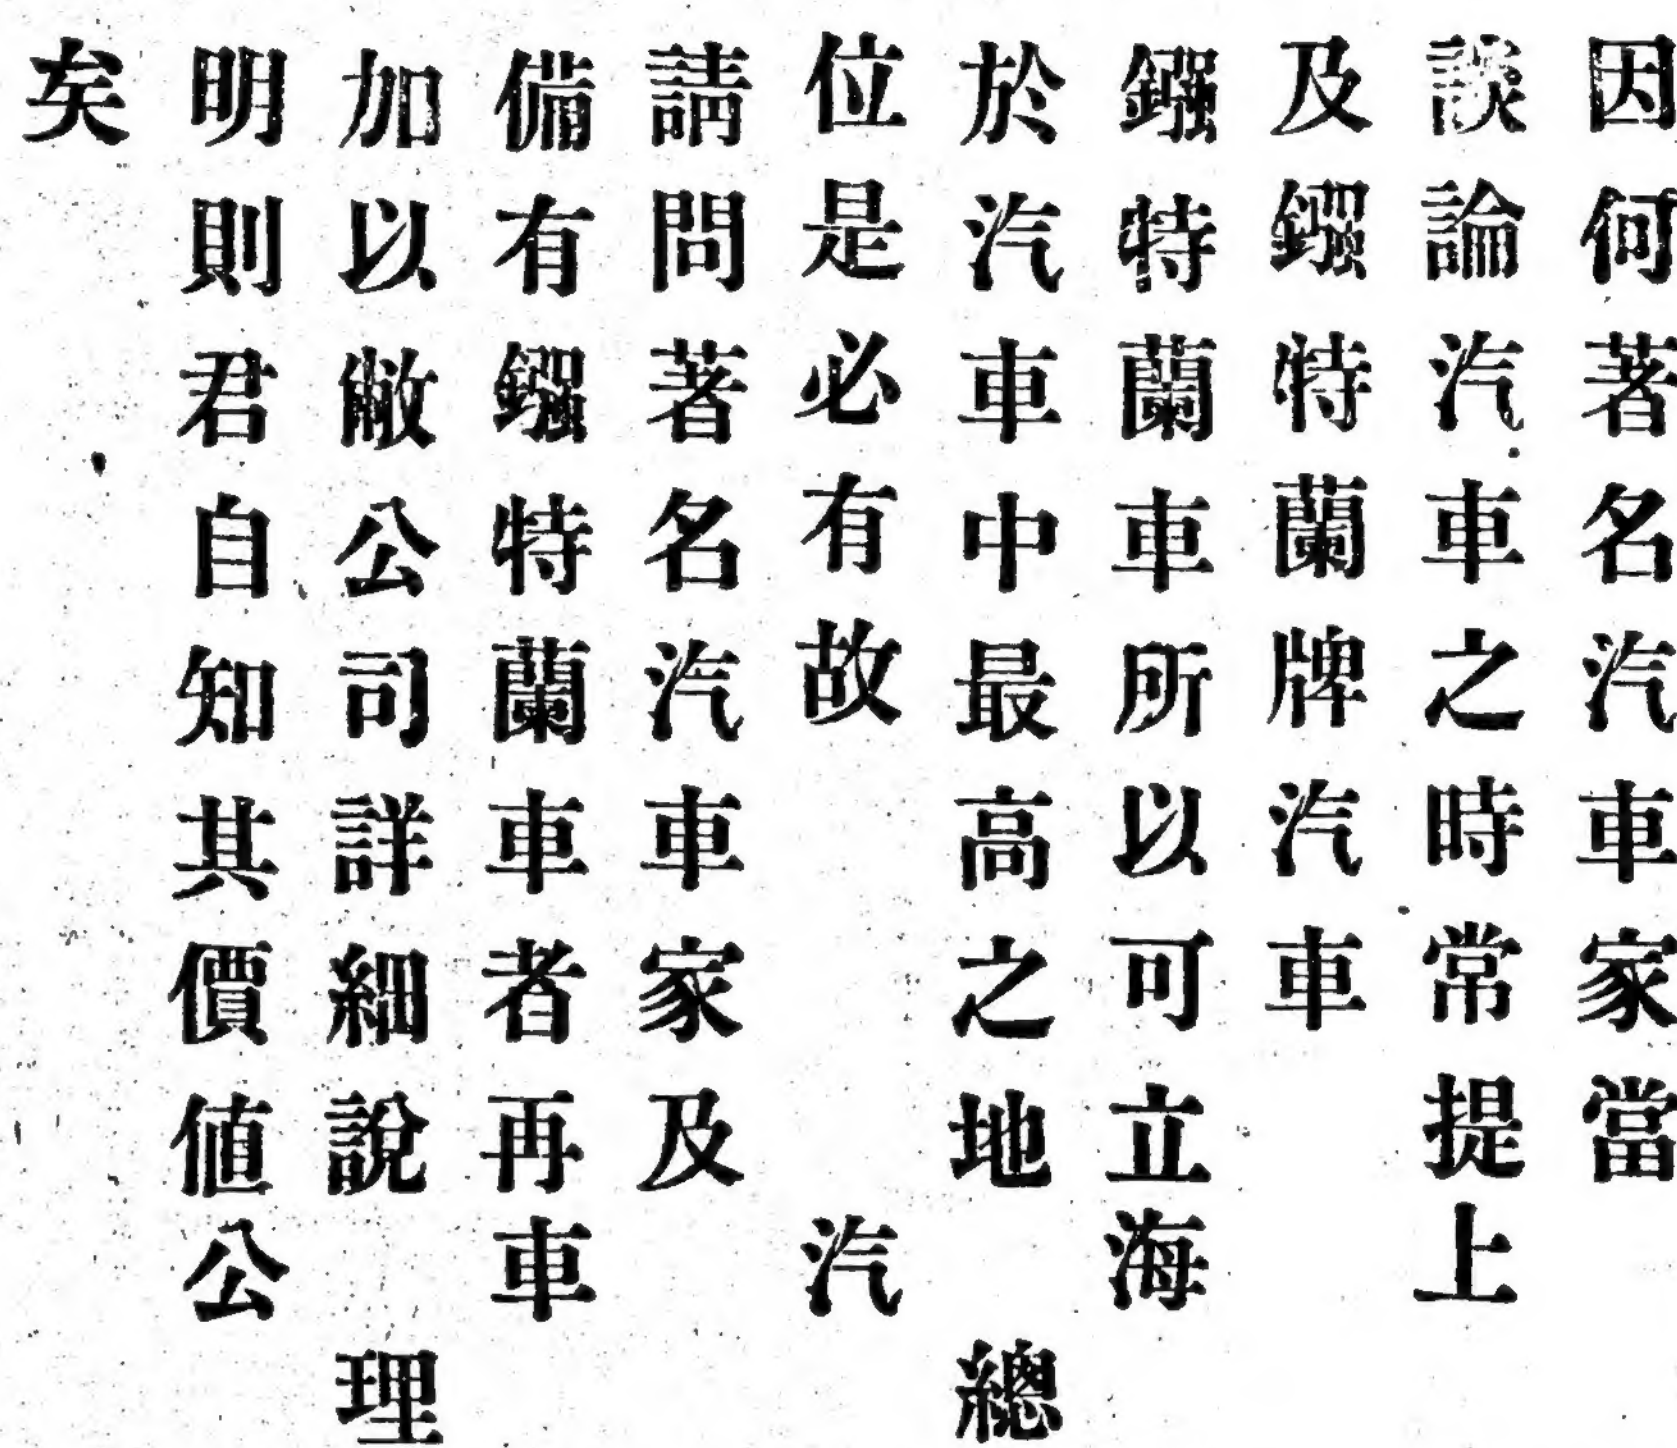 因何著名汽車家當
談論汽車之時常提
及鏹特蘭牌汽車
鏹特蘭車所以可立
於汽車中最高之地
位是必有故
請問著名汽車家及
備有鏹特蘭車者再
加以敝公司詳細說
明則君自知其價值
矣
上海汽車公
總理